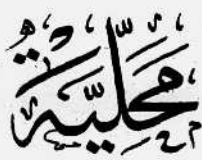 محلية